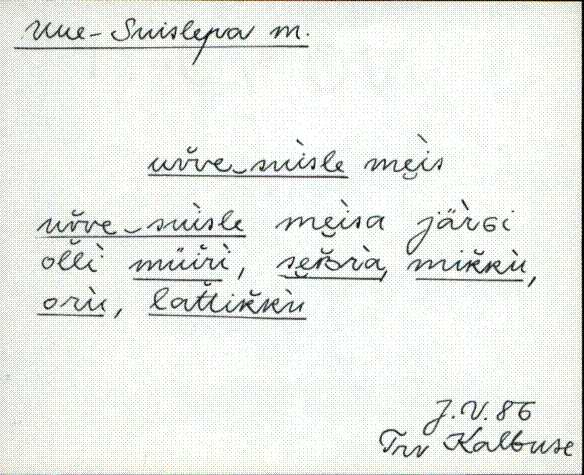 Uue-Suislepa m.
uv̆ve‿suìsle mẹ̀is
uv̆ve‿suìsle mẹ̀isa järGi
ol̆lì müìr̆ì, sẹ̆Bra, mik̆kù,
orù, lat̆tik̆kù
J.V. 86
Trv Kalbuse